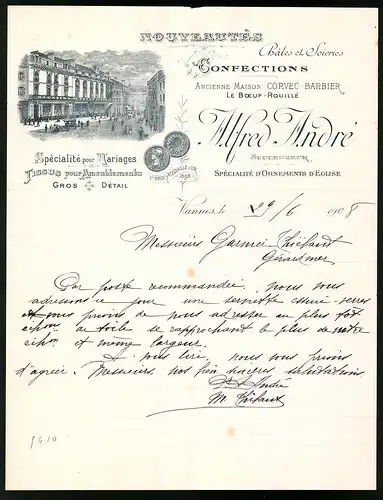 NOUVEAUTÉS
Châles et Soieries
CONFECTIONS
ANCIENNE MAISON CORVEC-BARBIER
LE BŒUF-ROUILLÉ
Alfred André
SUCCESSEUR
SPÉCIALITÉ D'ORNEMENTS D'EGLISE
Spécialité pour Mariages
TISSUS pour Ameublements
GROS DÉTAIL
Vannes, le 29/6 1908
Messieurs Garnier Thiébaut
Gérardmer
Par poste recommandée nous vous
adressons ce jour une serviette essuie-verres
et vous prions de nous adresser au plus tôt
échon de toile se rapprochant le plus de notre
échon et même largeur.
A vous lire, nous vous prions
d'agréer, Messieurs, nos bien sincères salutations
André
M. Thébaut